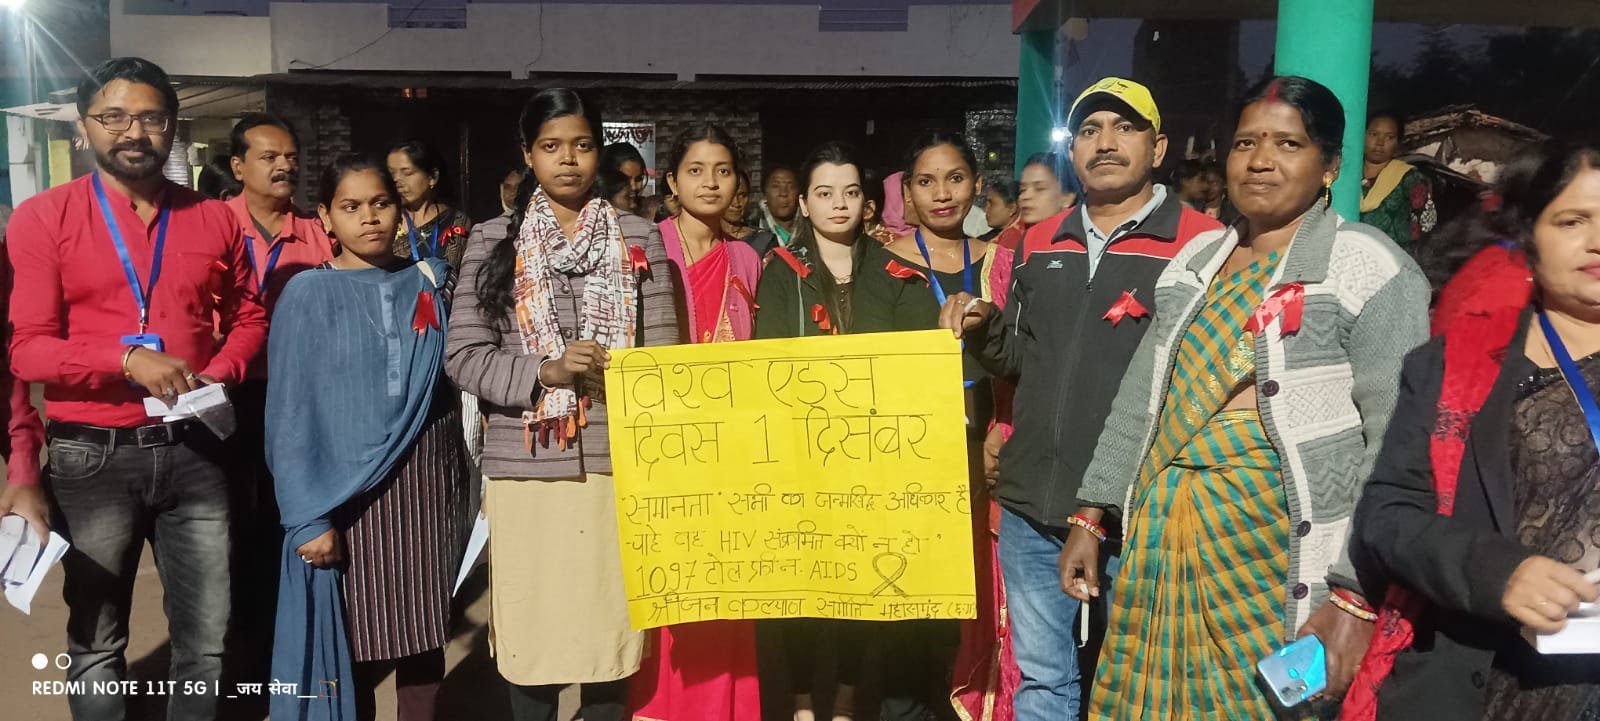 विश्व एड्स
दिवस 1 दिसंबर
"समानता" सभी का जन्मसिद्ध अधिकार है
चाहे वह HIV संक्रमित क्यों न हो"
1097 टोल फ्री नं. AIDS
श्रीजन कल्याण समिति - महासमुंद (छ.ग.)
REDMI NOTE 11T 5G | _जय सेवा__🏹